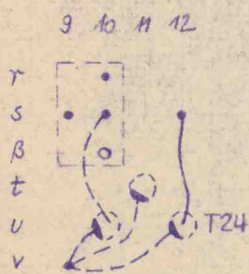 9 10 11 12
r
s
β
t
u T24
v